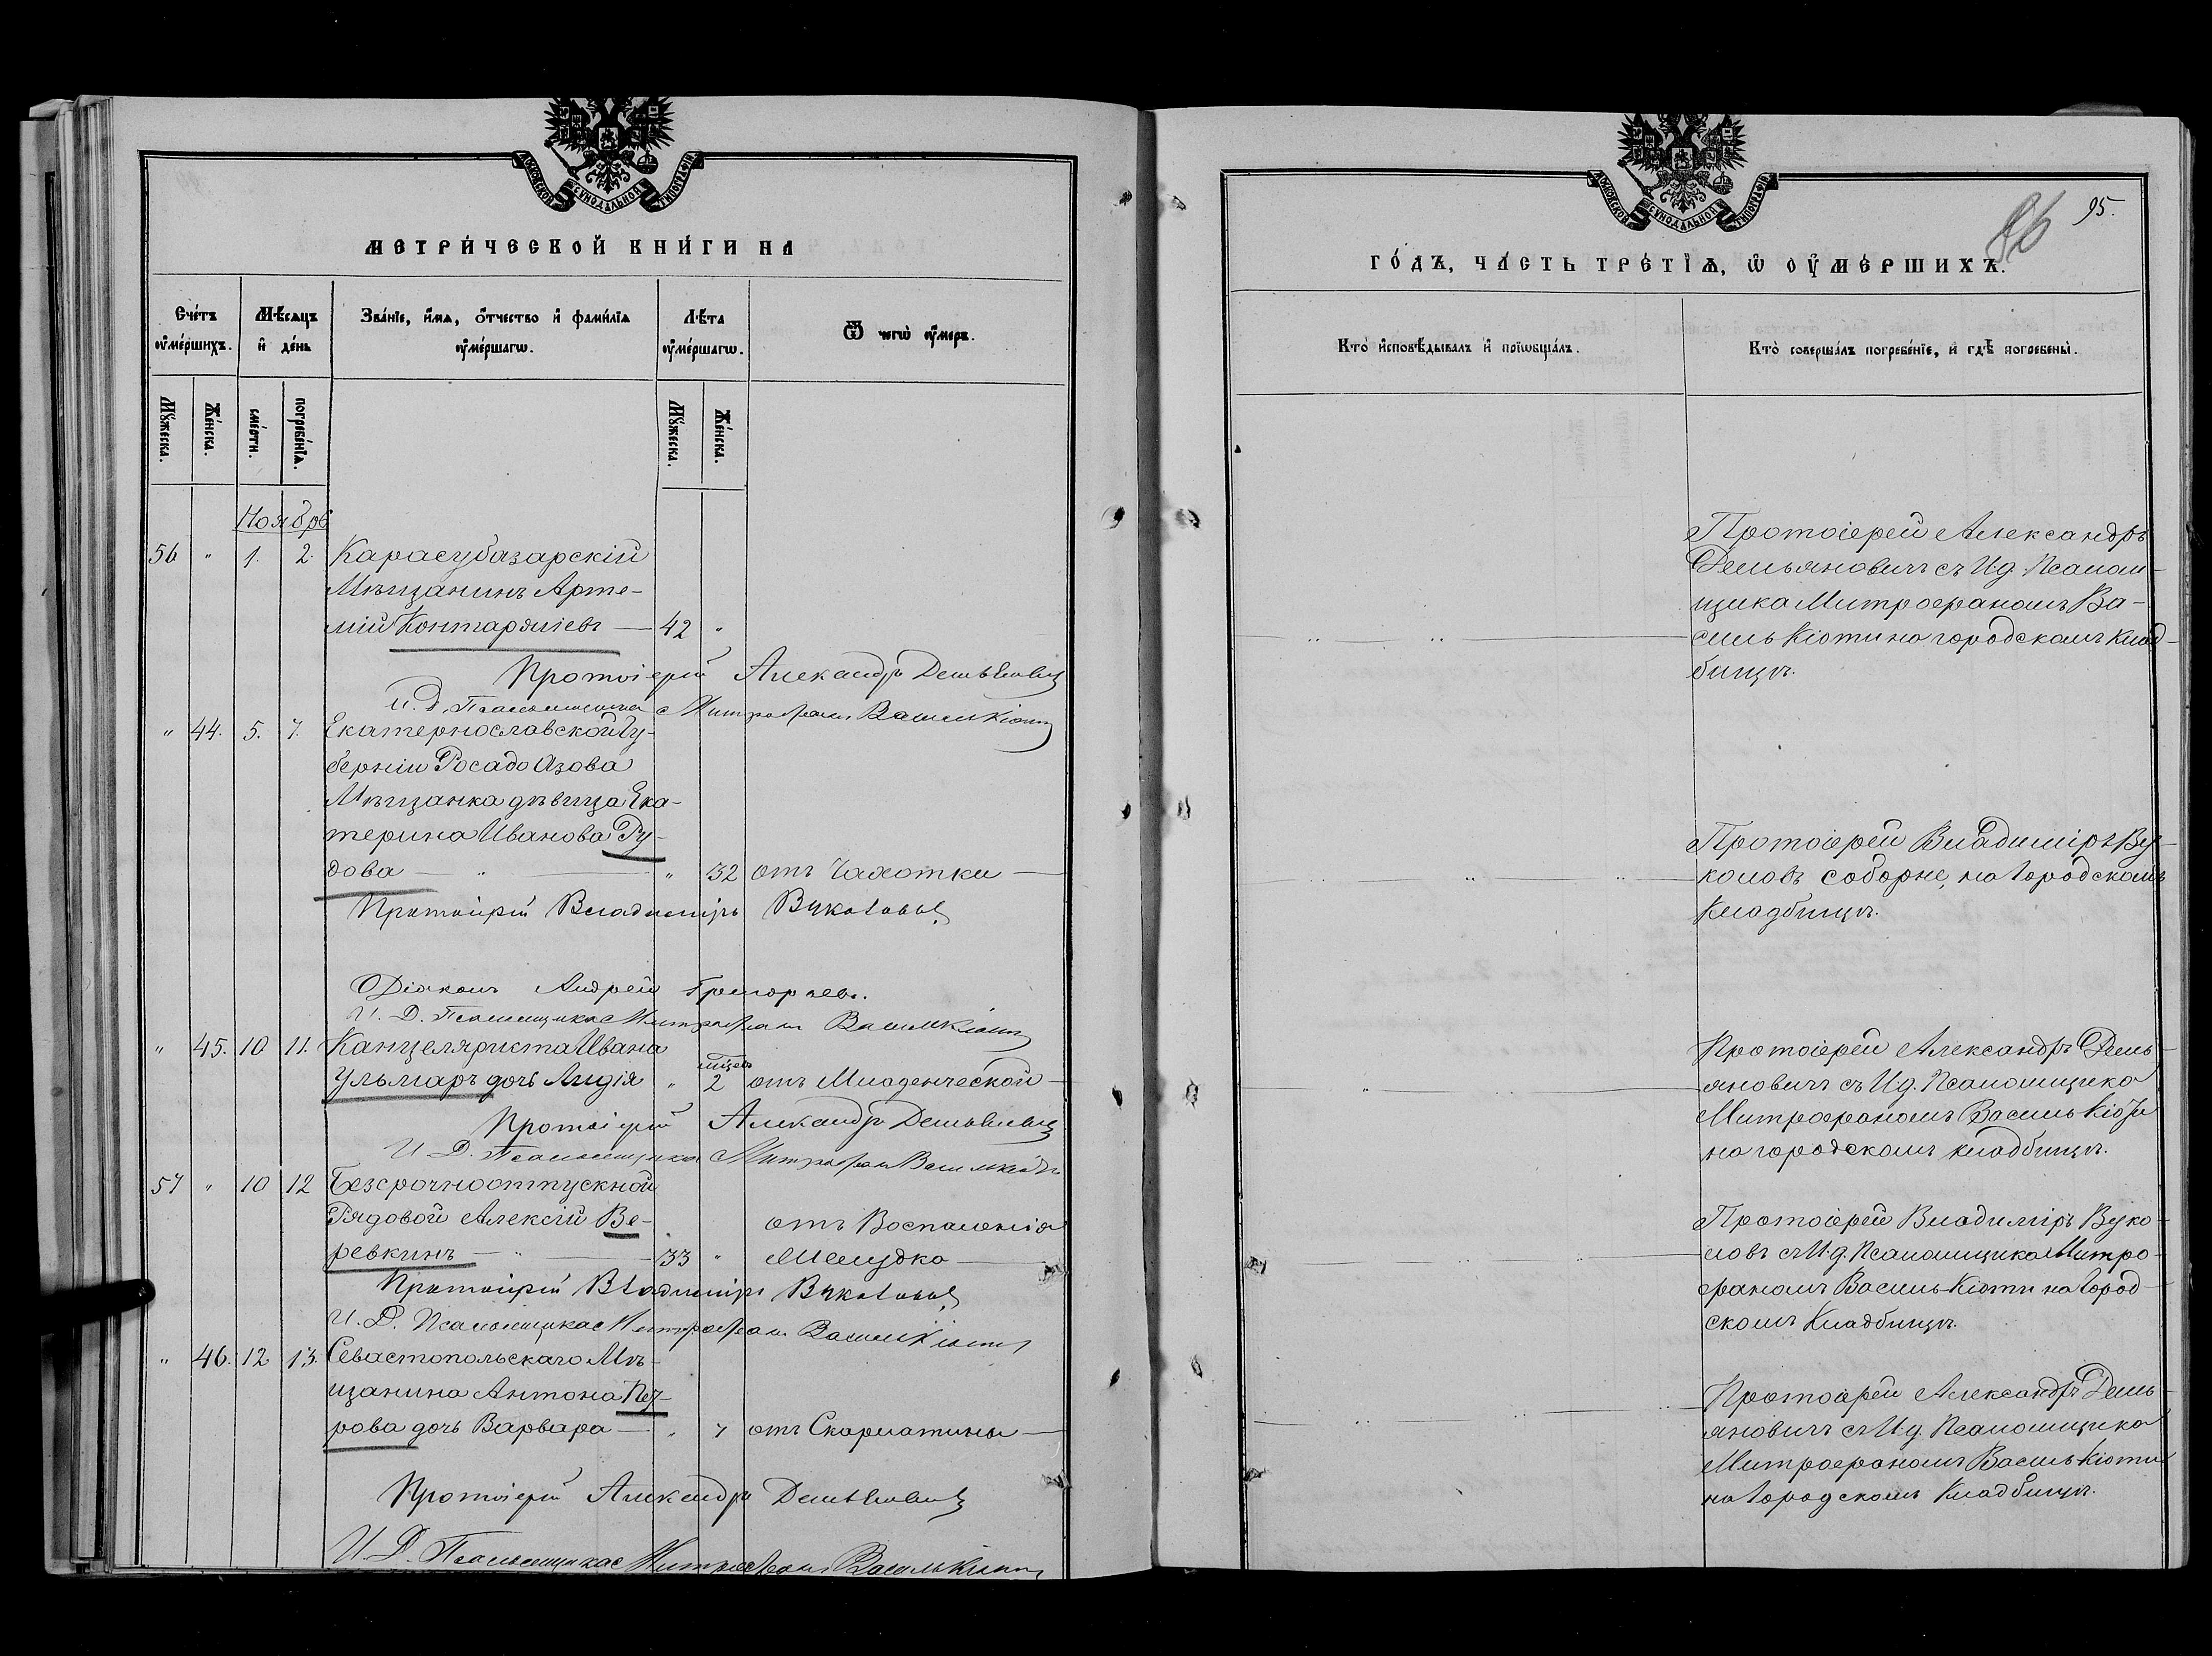 МОСКОВСКОЙ СѴНОДАЛЬНОЙ ТИПОГРАФІИ
МЕТРИ́ЧЕСКОЙ КНИ́ГИ НА
Сче́тъ ᲂу҆ме́ршихъ.
Мѣ́сяцъ и҆ де́нь
Зва́нїе, и҆́мѧ, ѻ҆́тчество и҆ фами́лїѧ ᲂу҆ме́ршагѡ.
Лѣ́та ᲂу҆ме́ршагѡ.
Ѿ чегѡ̀ ᲂу҆́меръ.
Мꙋ́жеска.
Же́нска.
сме́рти.
погребе́нїѧ.
Мꙋ́жеска.
Же́нска.
Ноябрь
56 " 1. 2. Карасубазарскій
Мѣщанинъ Арте-
мій Контарджіевъ — 42 "
Протоіерей Александръ Демьяновичъ
И. Д. Псаломщика Митрофанъ Василькіоти
" 44. 5. 7. Екатернославской Гу-
берніи Посада Азова
Мѣщанка дѣвица Ека-
терина Иванова Ру-
дова — " — " 32 отъ Чахотки —
Протоіерей Владиміръ Вуколовъ
Діаконъ Андрей Григорьев.
И. Д. Псаломщика Митрофанъ Василькіоти
" 45. 10 11. Канцеляриста Ивана
Ульмаръ дочь Лидія " мѣсец 2 отъ Младенческой —
Протоіерей Александръ Демьяновичъ
И. Д. Псаломщика Митрофанъ Василькіоти
57 " 10 12 Безсрочноотпускной
Рядовой Алексій Ве- отъ Воспаленія
ревкинъ — " — 33 " Желудка —
Протоіерей Владиміръ Вуколовъ
И. Д. Псаломщика Митрофанъ Василькіоти
" 46. 12 13. Севастопольскаго Мѣ-
щанина Антона
рова дочь Варвара — " 7 отъ Скарлатины —
Протоіерей Александръ Демьяновичъ
И. Д. Псаломщика Митрофанъ Василькіоти
МОСКОВСКОЙ СѴНОДАЛЬНОЙ ТИПОГРАФІИ
86 95.
ГО́ДЪ, ЧА́СТЬ ТРЕ́ТЇѦ, Ѡ҆ ОУ҆МЕ́РШИХЪ.
Кто̀ и҆сповѣ́дывалъ и҆ прїѡбща́лъ.
Кто̀ соверша́лъ погребе́нїе, и҆ гдѣ̀ погребены̀.
Протоіерей Александръ
Демьяновичъ съ И.д. Псалом-
щика Митрофаномъ Ва-
силькіоти на городскомъ клад-
бищѣ.
Протоіерей Владиміръ Ву-
коловъ соборне, на Городскомъ
Кладбищѣ.
Протоіерей Александръ Демь-
яновичъ съ И.д. Псаломщика
Митрофаномъ Василькіоти
на городскомъ кладбищѣ.
Протоіерей Владиміръ Вуко-
ловъ съ И.д. Псаломщика Митро-
фаномъ Василькіоти на Город-
скомъ Кладбищѣ.
Протоіерей Александръ Демь-
яновичъ съ И.д. Псаломщика
Митрофаномъ Василькіоти
на Городскомъ Кладбищѣ.